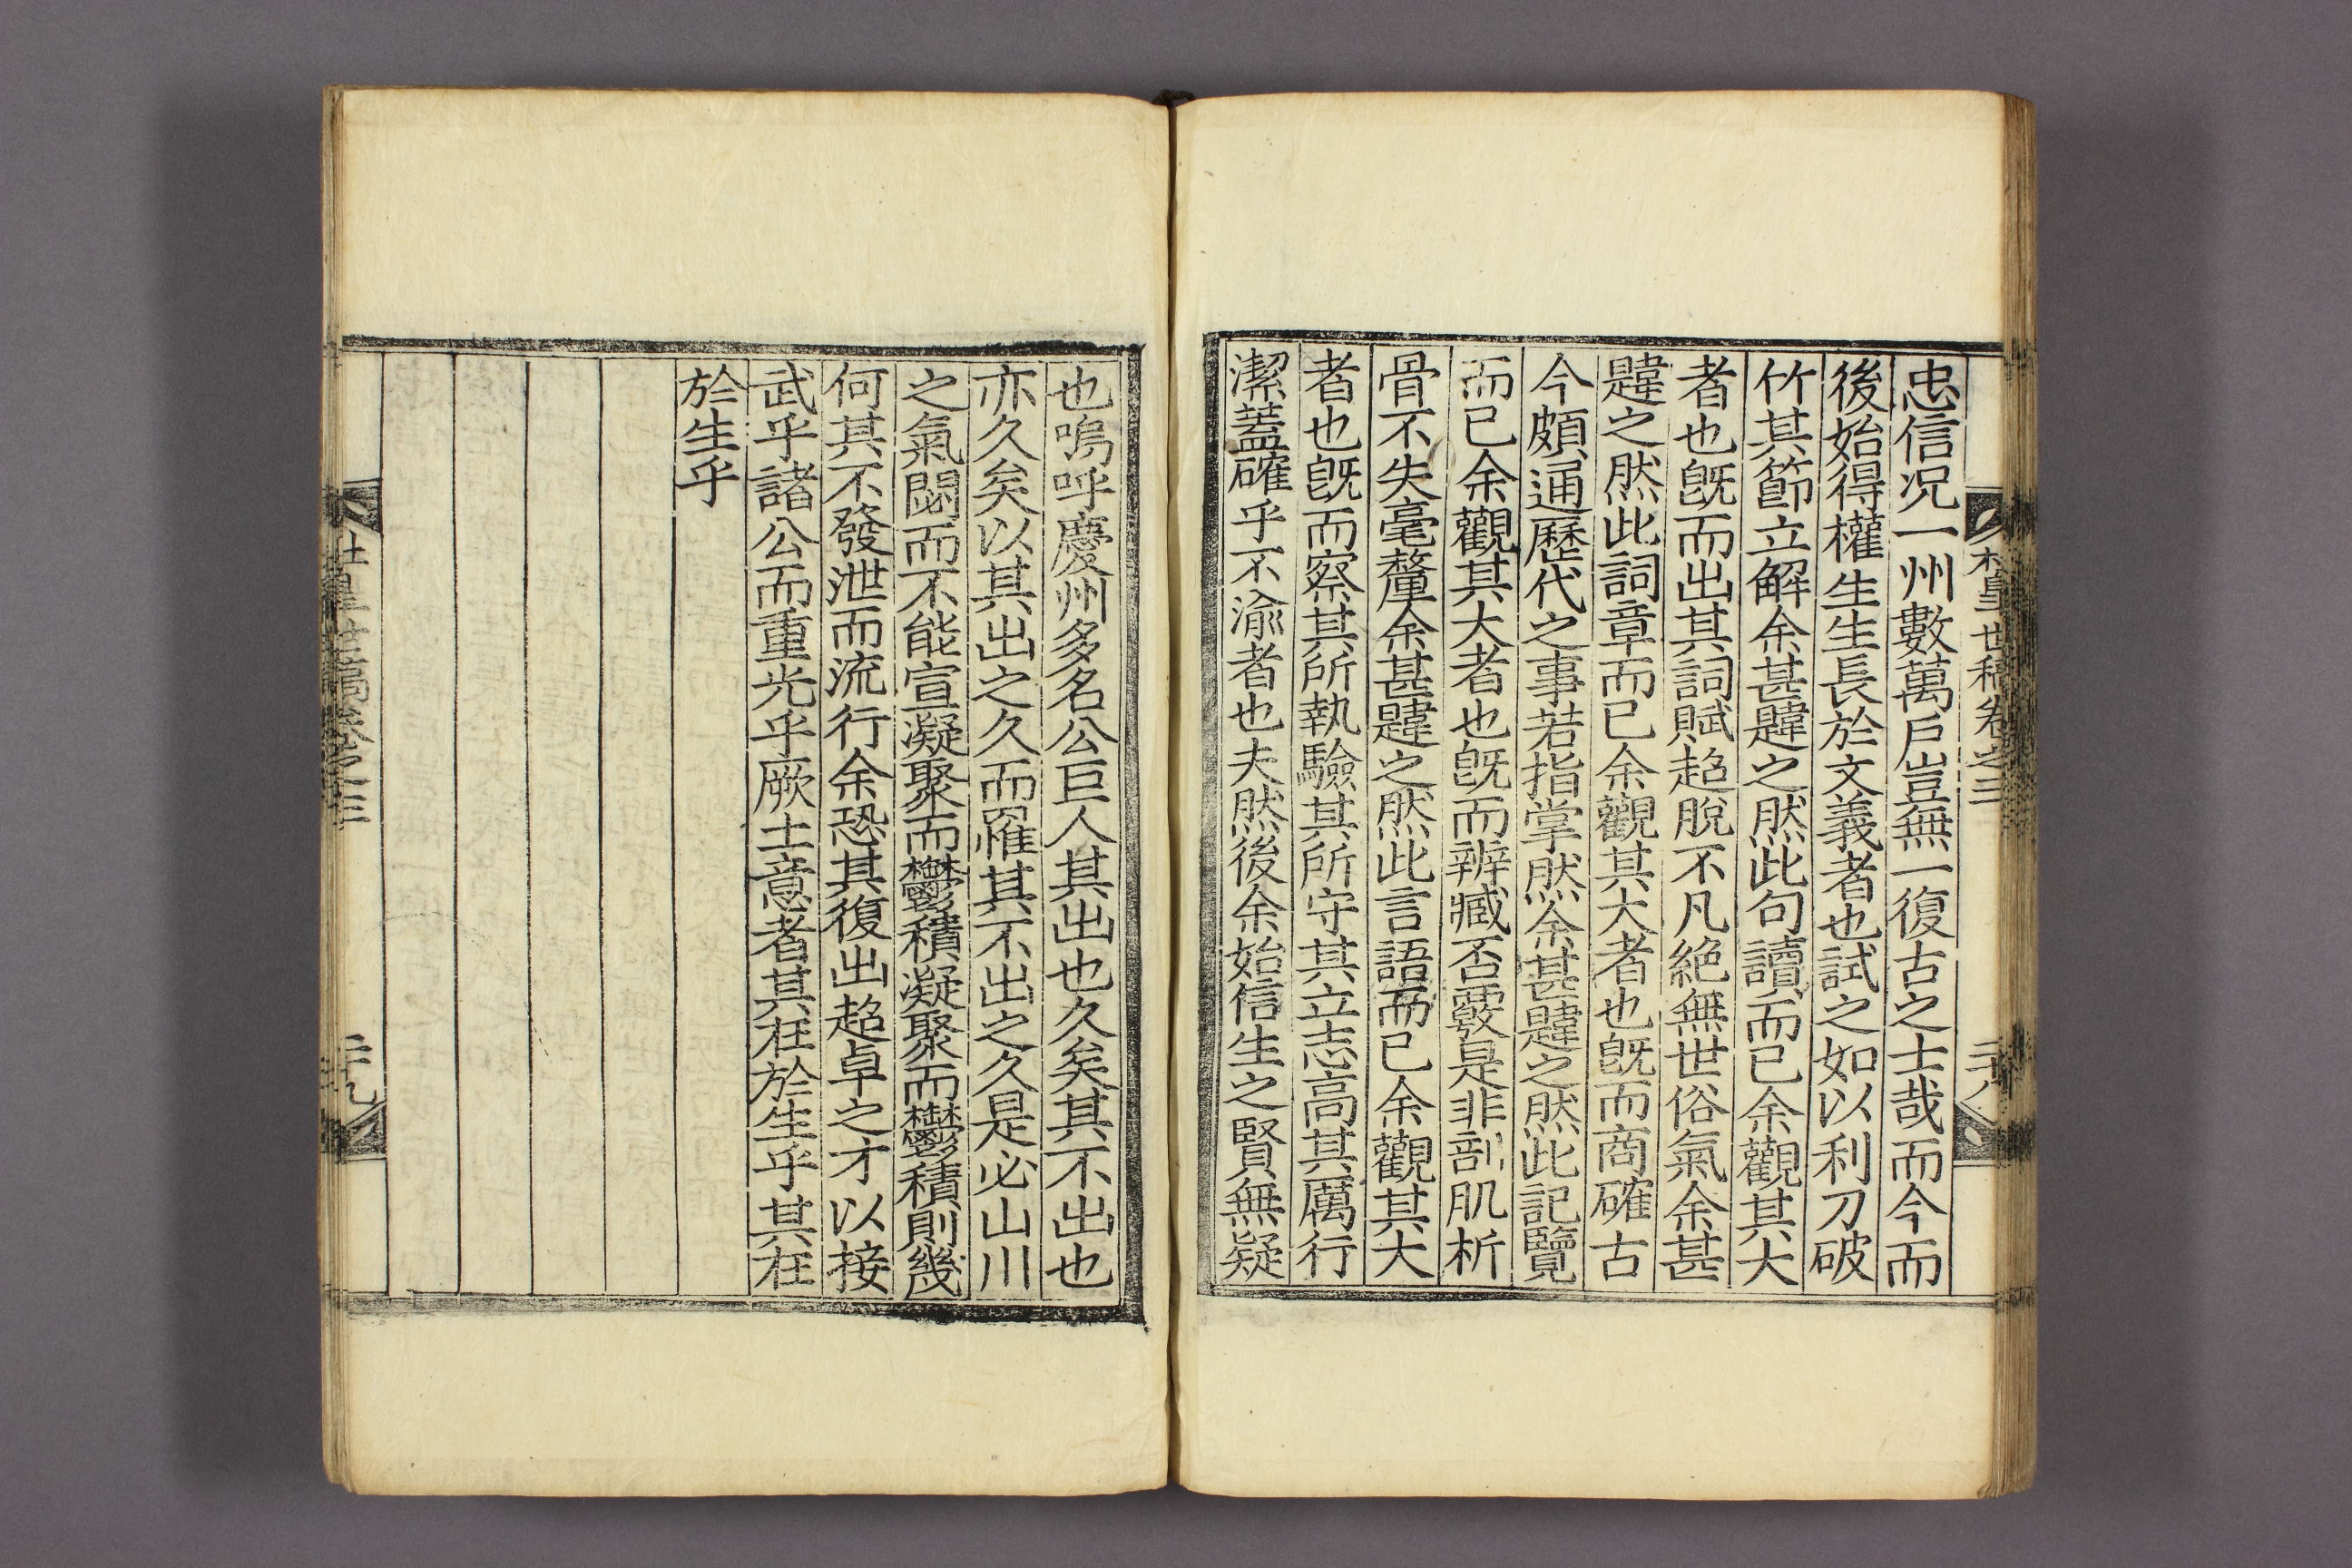 忠信况一州數萬戶豈無一復古之士哉而今而
後始得權生生長於文義者也試之如以利刀破
竹其節立解余甚韙之然此句讀而已余觀其大
者也旣而出其詞賦超脫不凡絶無世俗氣余甚
韙之然此詞章而已余觀其大者也旣而商確古
今頗通歷代之事若指掌然余甚韙之然此記覽
而已余觀其大者也旣而辨臧否覈是非剖肌析
骨不失毫釐余甚韙之然此言語而已余觀其大
者也旣而察其所執驗其所守其立志高其厲行
潔蓋確乎不渝者也夫然後余始信生之賢無疑
也嗚呼慶州多名公巨人其出也久矣其不出也
亦久矣以其出之久而罹其不出之久是必山川
之氣閟而不能宣凝聚而欝積凝聚而欝積則幾
何其不發泄而流行余恐其復出超卓之才以接
武乎諸公而重光乎厥土意者其在於生乎其在
於生乎
世稿卷之三
二十八
世稿卷之三
二十九